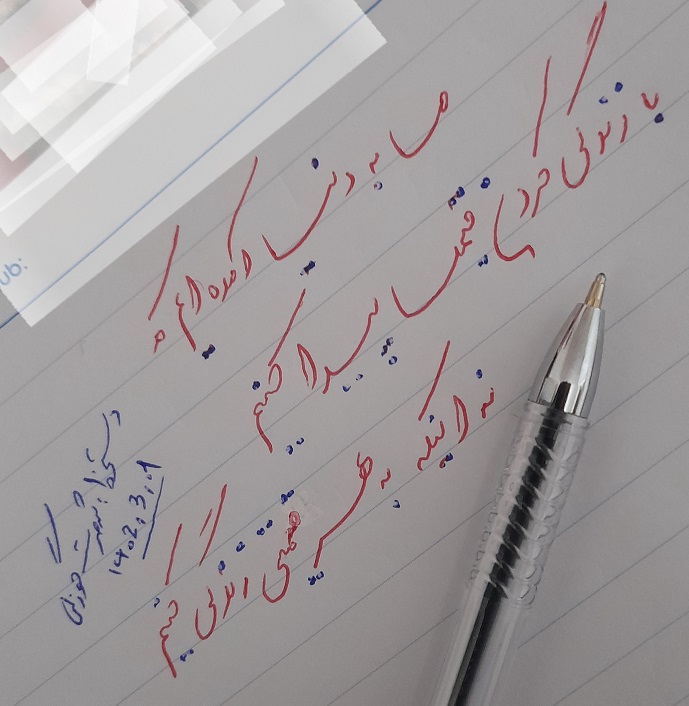 ما به دنیا آمده ایم که
با زندگی کردن قیمت پیدا کنیم
نه اینکه به هر قیمتی زندگی کنیم
۱۴۰۲،۳،۹
ub: